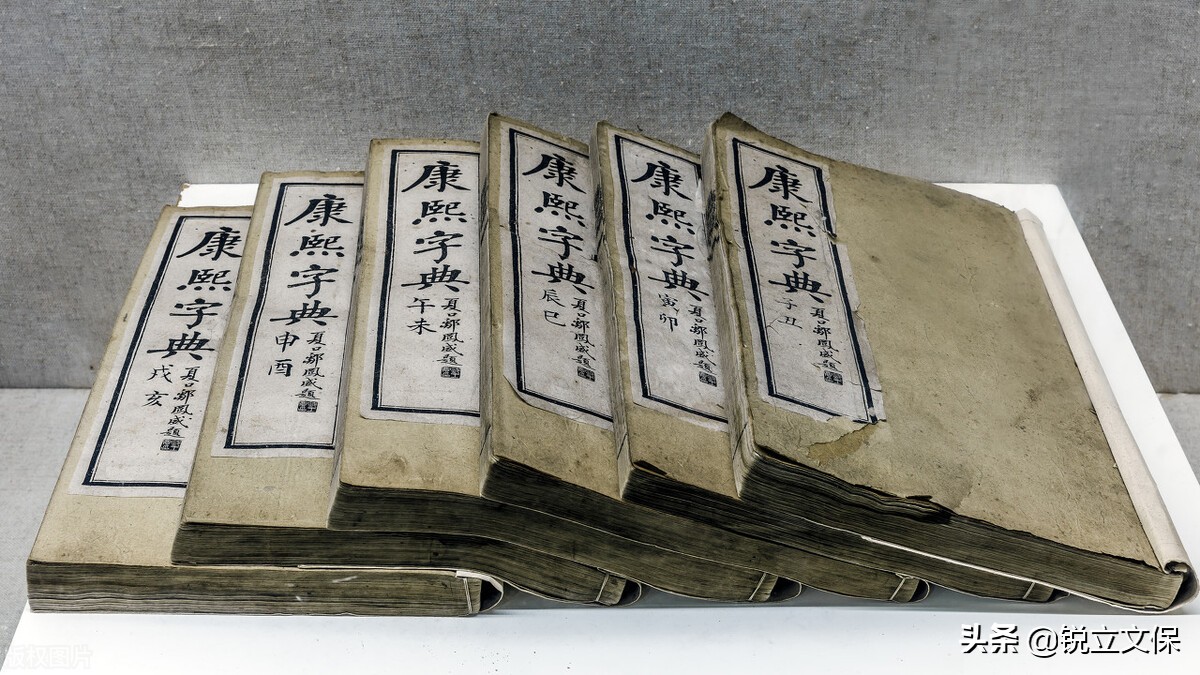 康熙字典
戌亥
夏口鄒鳳威題
康熙字典
申酉
夏口鄒鳳威題
康熙字典
午未
夏口鄒鳳威題
康熙字典
辰巳
夏口鄒鳳威題
康熙字典
寅卯
夏口鄒鳳威題
康熙字典
子丑
夏口鄒鳳威題
版权图片
头条 @锐立文保